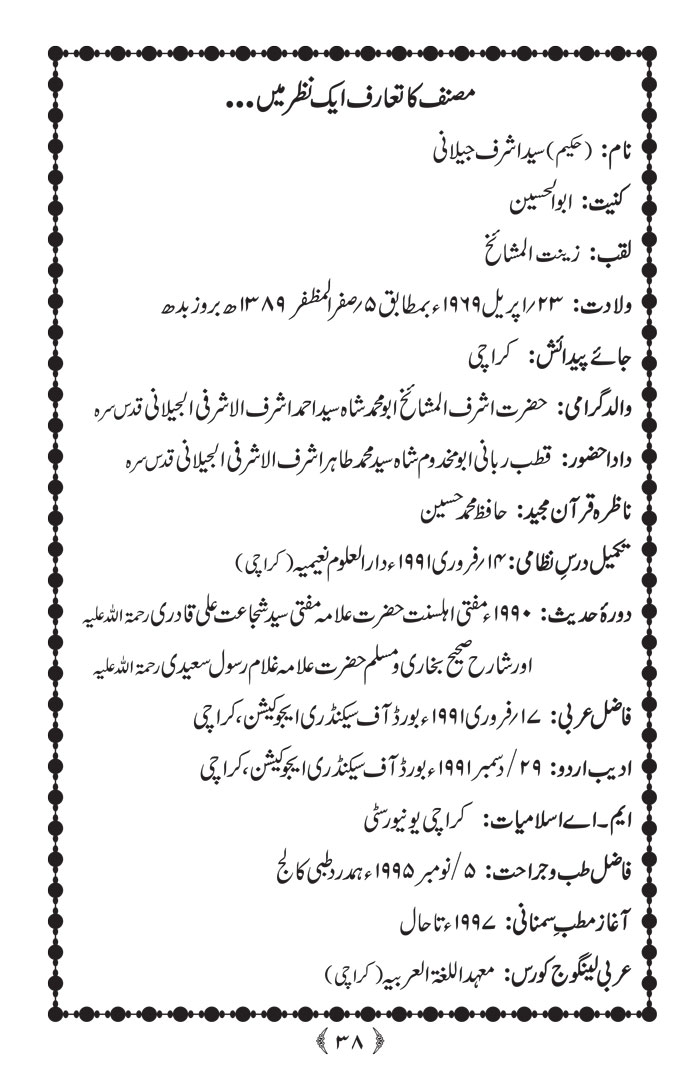 مصنف کا تعارف ایک نظر میں...
نام: (حکیم) سید اشرف جیلانی
کنیت: ابوالحسین
لقب: زینت المشائخ
ولادت: ۲۳؍اپریل ۱۹۶۹ء بمطابق ۵؍صفر المظفر ۱۳۸۹ھ بروز بدھ
جائے پیدائش: کراچی
والد گرامی: حضرت اشرف المشائخ ابو محمد شاہ سید احمد اشرف الاشرفی الجیلانی قدس سرہ
دادا حضور: قطب ربانی ابو مخدوم شاہ سید محمد طاہر اشرف الاشرفی الجیلانی قدس سرہ
ناظرہ قرآن مجید: حافظ محمد حسین
تکمیل درسِ نظامی: ۱۴؍فروری ۱۹۹۱ء دارالعلوم نعیمیہ (کراچی)
دورۂ حدیث: ۱۹۹۰ء مفتی اہلسنت حضرت علامہ مفتی سید شجاعت علی قادری رحمۃ اللہ علیہ
اور شارح صحیح بخاری و مسلم حضرت علامہ غلام رسول سعیدی رحمۃ اللہ علیہ
فاضل عربی: ۱۷؍فروری ۱۹۹۱ء بورڈ آف سیکنڈری ایجوکیشن، کراچی
ادیب اردو: ۲۹/دسمبر ۱۹۹۱ء بورڈ آف سیکنڈری ایجوکیشن، کراچی
ایم۔اے اسلامیات: کراچی یونیورسٹی
فاضل طب و جراحت: ۵/نومبر ۱۹۹۵ء ہمدرد طبی کالج
آغاز مطبِ سمنانی: ۱۹۹۷ء تا حال
عربی لینگوج کورس: معہد اللغۃ العربیہ (کراچی)
﴿۳۸﴾